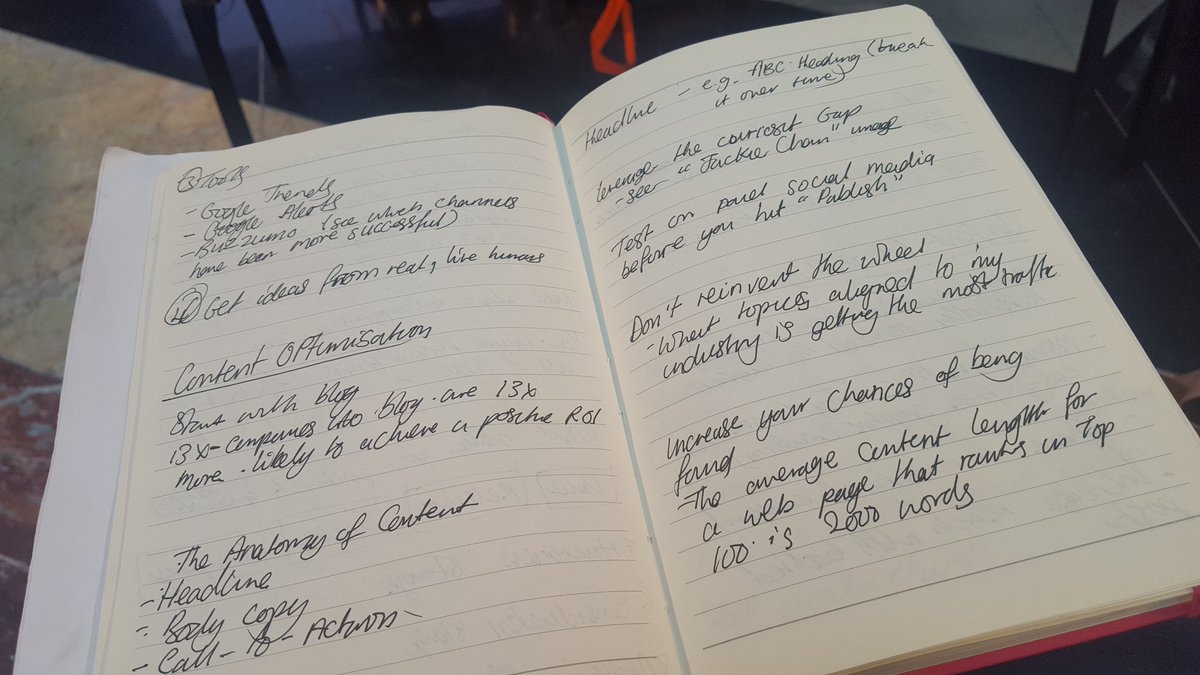 ③ Tools
- Google Trends
- Google Alerts
- Buzzumo (see which channels
have been more successful)
④ Get ideas from real, live humans
Content Optimisation
Start with blog
13x - companies who blog are 13x
more likely to achieve a positive ROI
The Anatomy of Content
- Headline
- Body copy
- Call-to-Actions
Headline - e.g. ABC Heading (break
it over time)
Leverage the curiosit Gap
- seer "Jackie Chan" image
Test on paid social media
before you hit "Publish"
Don't reinvent the wheel
- What topics aligned to my
industry is getting the most traffic
Increase your chances of being
found
- The average content length for
a web page that ranks in Top
100 is 2000 words